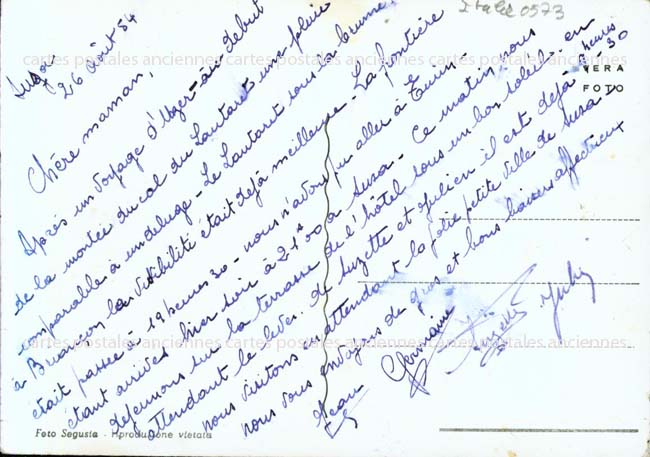 Italie 0573
Suza
26 août 54
Chère maman,
Après un voyage d'Uzer au début
de la montée du col du Lautaret une pluie
comparable à un déluge - Le Lautaret sous la brume
à Briançon la visibilité était déjà meilleure - La frontière
était passée à 19 heures 30 - nous n'avons pu aller à Turin -
étant arrivés hier soir à 21h00 à Suza - Ce matin nous
déjeunons sur la terrasse de l'hôtel sous un bon soleil en
attendant le lever de Suzette et Julien il est déjà 9 heures 30
nous visitons en attendant la jolie petite ville de Suza
nous vous envoyons de gros et bons baisers affectueux
Jean
Germaine
Suzette
Julien
VERA
FOTO
Foto Segusia - Riproduzione vietata
cartes postales anciennes cartes postales anciennes cartes postales anciennes
cartes postales anciennes cartes postales anciennes cartes postales anciennes